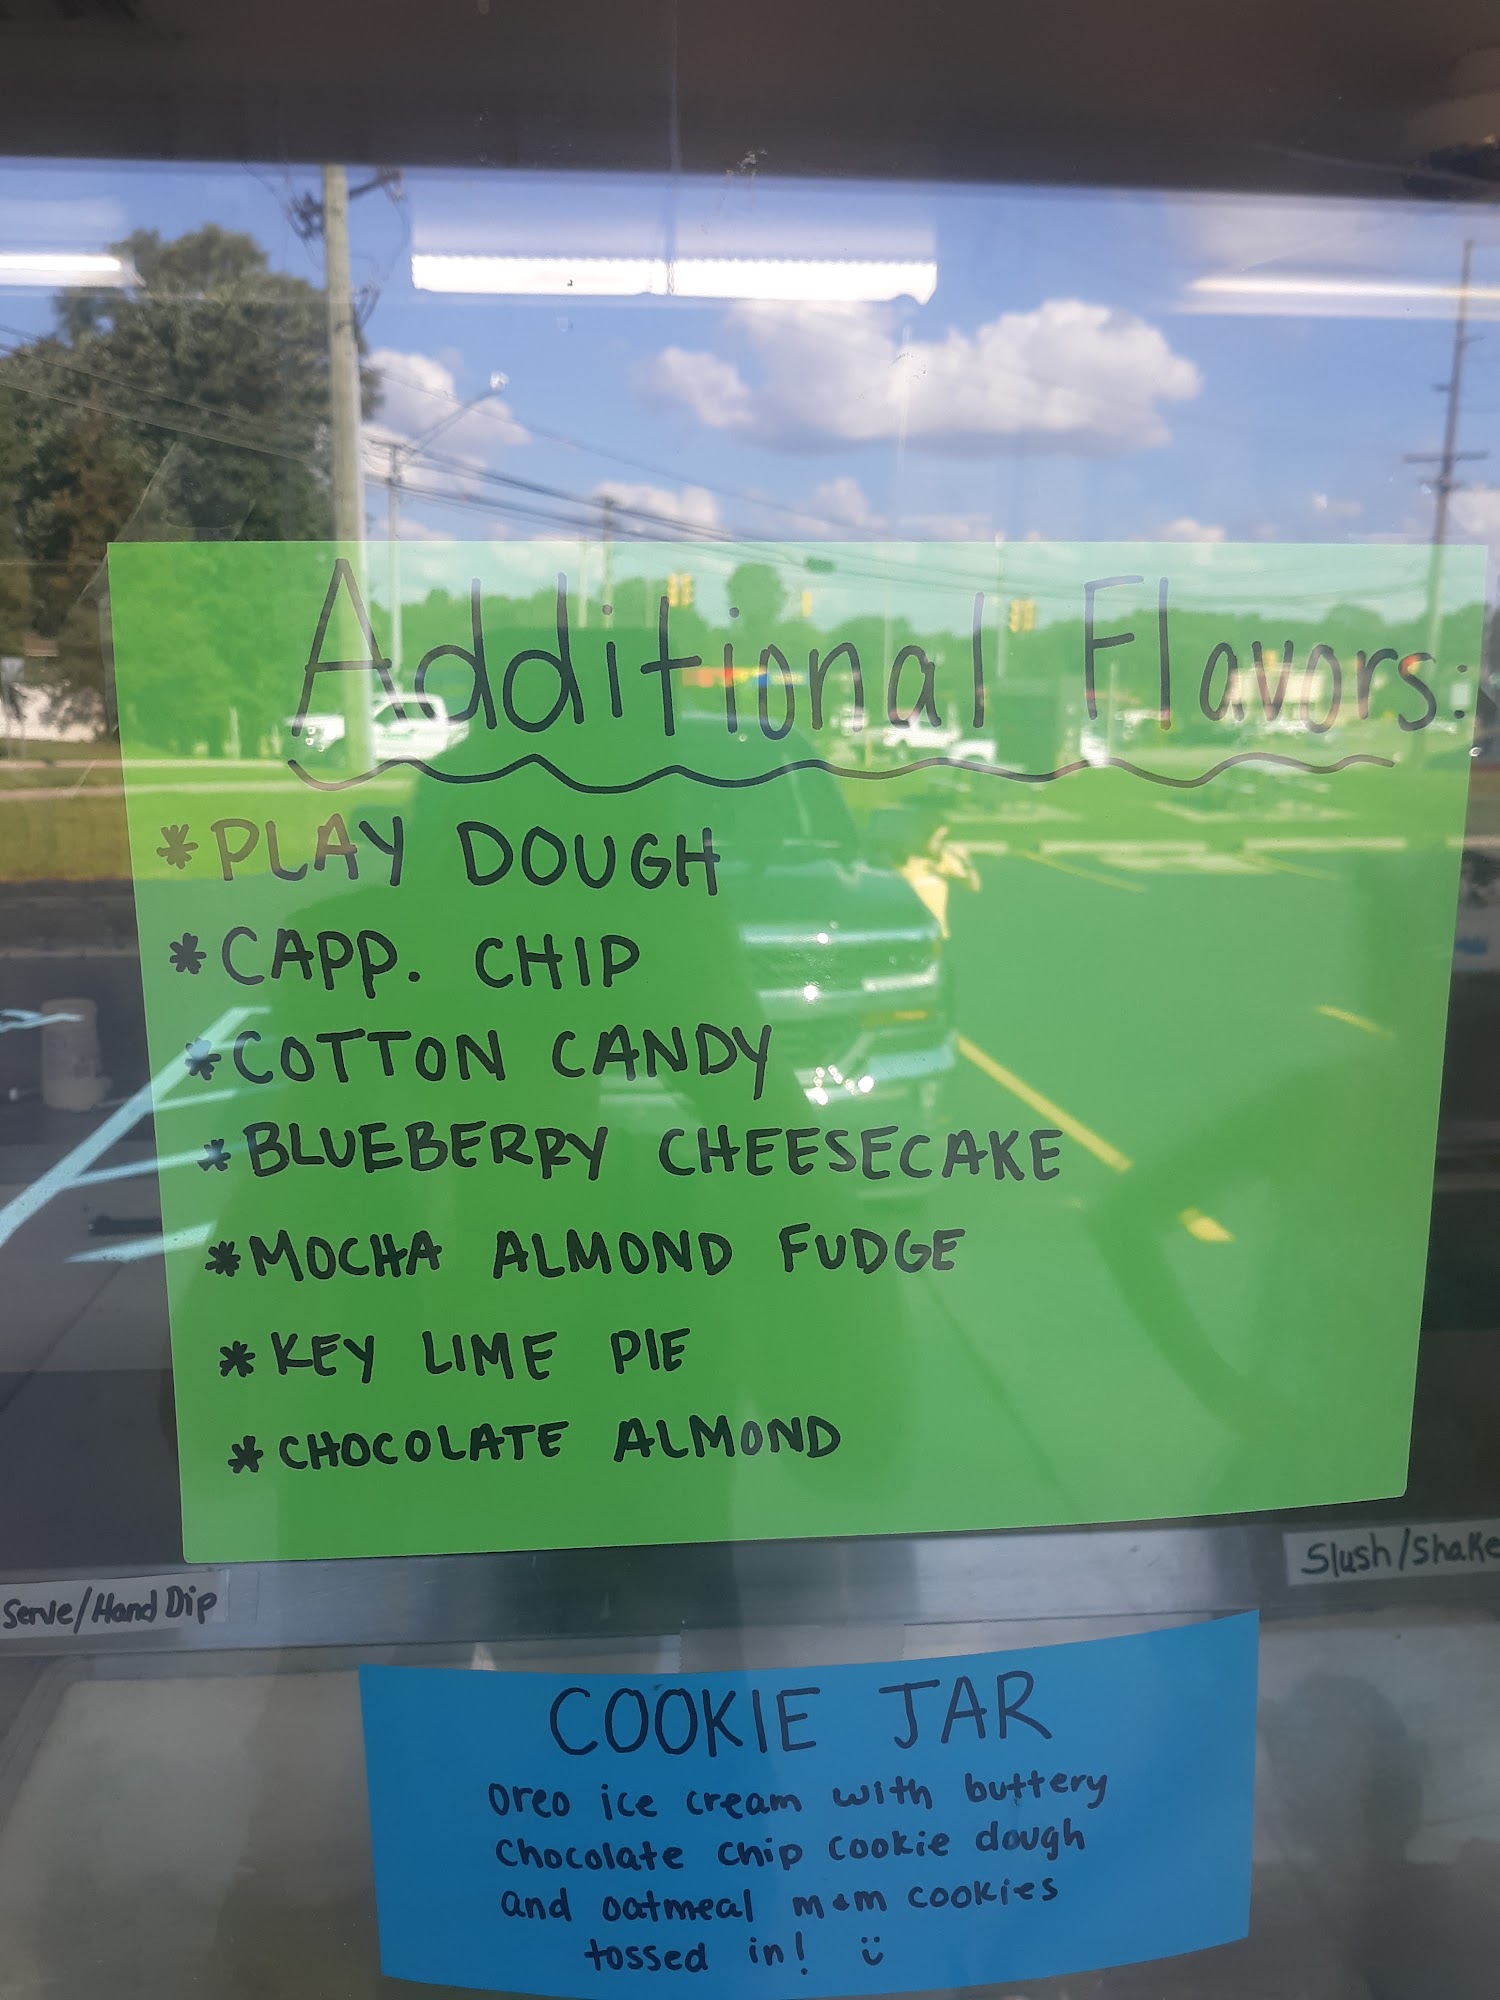 Additional Flavors:
*PLAY DOUGH
*CAPP. CHIP
*COTTON CANDY
*BLUEBERRY CHEESECAKE
*MOCHA ALMOND FUDGE
*KEY LIME PIE
*CHOCOLATE ALMOND
Serve/Hand Dip
Slush/Shake
COOKIE JAR
Oreo ice cream with buttery
chocolate chip cookie dough
and oatmeal m&m cookies
tossed in! ü